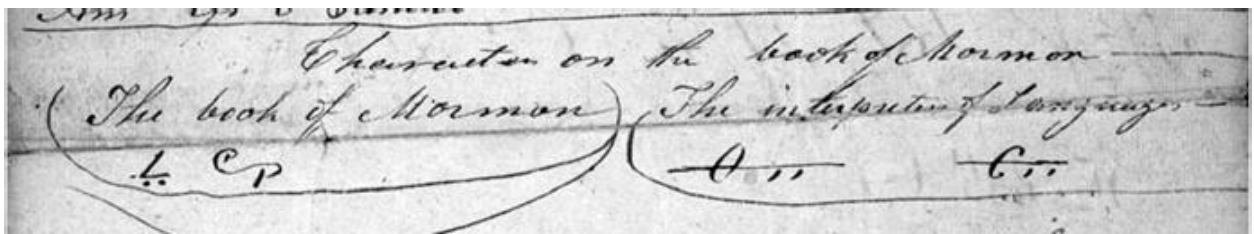 Character on the book of Mormon
The book of Mormon The interpreters of Languages